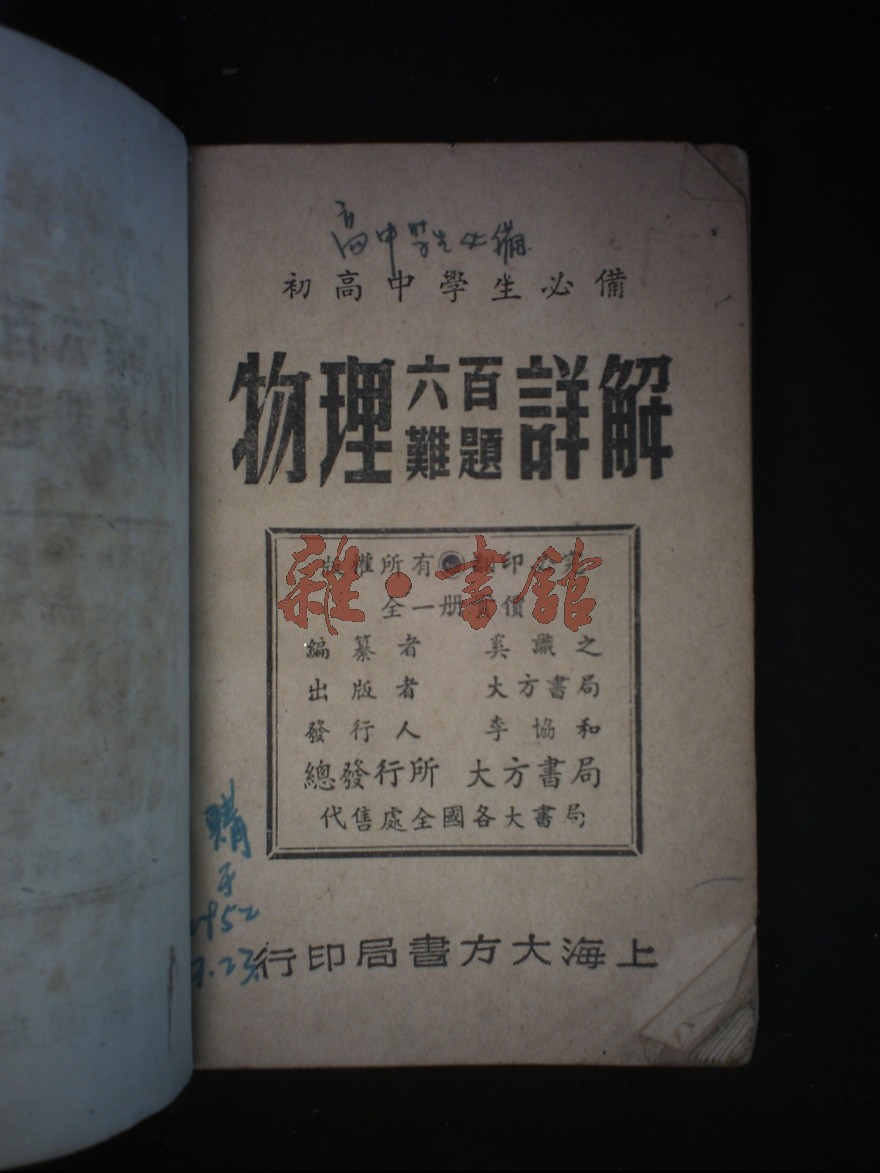 高中学生必備
初高中學生必備
物理六百難題詳解
版權所有 翻印必究
全一册實價
編纂者 奚識之
出版者 大方書局
發行人 李協和
總發行所 大方書局
代售處全國各大書局
雜·書館
購于
1952
.23.
上海大方書局印行